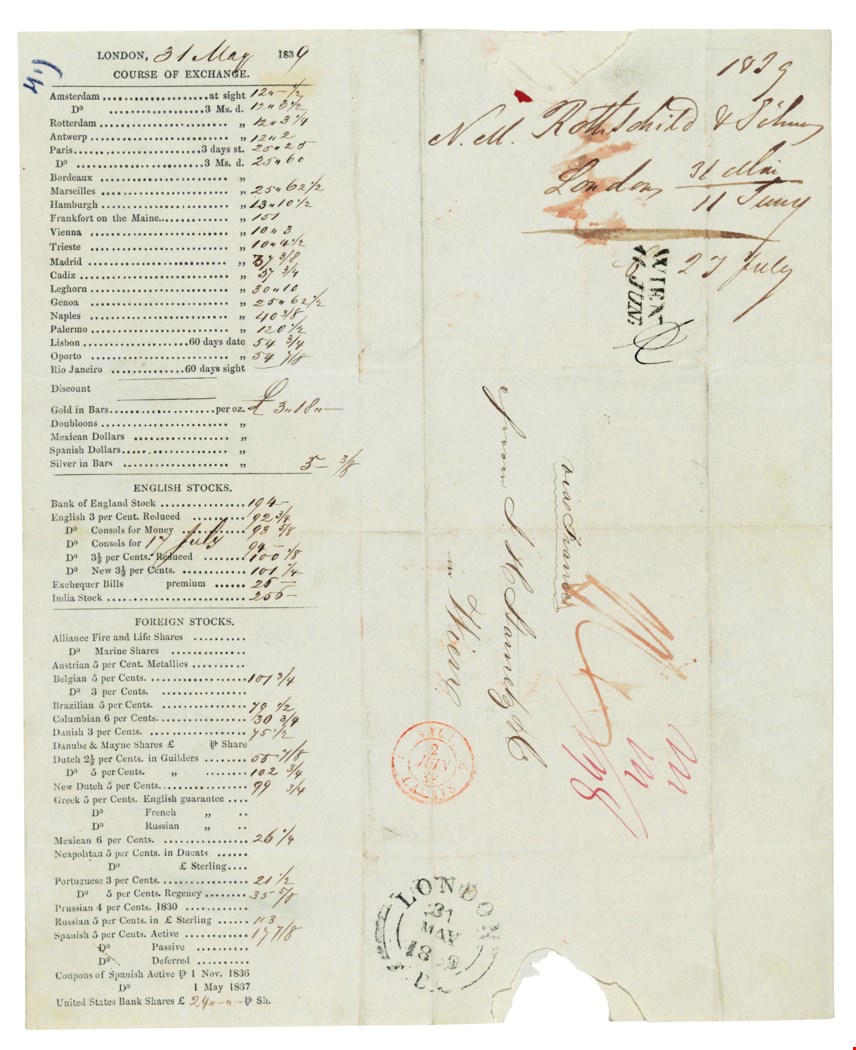 LONDON, 31 May 1839
COURSE OF EXCHANGE.
Amsterdam at sight 12 „ – 1/2
Dº 3 Ms. d. 12 „ 3 1/2
Rotterdam „ 12 „ 3 1/4
Antwerp „ 12 „ 2
Paris 3 days st. 25 „ 25
Dº 3 Ms. d. 25 „ 60
Bordeaux „
Marseilles „ 25 „ 62 1/2
Hamburgh „ 13 „ 10 1/2
Frankfort on the Maine „ 151
Vienna „ 10 „ 3
Trieste „ 10 „ 4 1/2
Madrid „ 37 3/8
Cadiz „ 37 3/4
Leghorn „ 30 „ 10
Genoa „ 25 „ 62 1/2
Naples „ 40 3/8
Palermo „ 120 1/2
Lisbon 60 days date 54 3/4
Oporto „ 54 7/8
Rio Janeiro 60 days sight
Discount
Gold in Bars per oz. £ 3 „ 18 „ –
Doubloons „
Mexican Dollars „
Spanish Dollars „
Silver in Bars „ 5 – 3/8
ENGLISH STOCKS.
Bank of England Stock 194 –
English 3 per Cent. Reduced 92 3/4
Dº Consols for Money 93 5/8
Dº Consols for 17 July 94 –
Dº 3½ per Cents. Reduced 100 1/8
Dº New 3½ per Cents. 101 1/4
Exchequer Bills premium 26 –
India Stock 256 –
FOREIGN STOCKS.
Alliance Fire and Life Shares
Dº Marine Shares
Austrian 5 per Cent. Metallics
Belgian 5 per Cents. 101 3/4
Dº 3 per Cents.
Brazilian 5 per Cents. 79 1/2
Columbian 6 per Cents. 30 3/4
Danish 3 per Cents. 75 1/2
Danube & Mayne Shares £ ⅌ Share
Dutch 2½ per Cents. in Guilders 55 7/8
Dº 5 per Cents. „ 102 3/4
New Dutch 5 per Cents. 99 3/4
Greek 5 per Cents. English guarantee
Dº French „
Dº Russian „
Mexican 6 per Cents. 26 1/4
Neapolitan 5 per Cents. in Ducats
Dº £ Sterling
Portuguese 3 per Cents. 21 1/2
Dº 5 per Cents. Regency 35 5/8
Prussian 4 per Cents. 1830
Russian 5 per Cents. in £ Sterling 113
Spanish 5 per Cents. Active 19 7/8
Dº Passive
Dº Deferred
Coupons of Spanish Active ⅌ 1 Nov. 1836
Dº 1 May 1837
United States Bank Shares £ 24 „ – „ – ⅌ Sh.
1839
N. M. Rothschild & Söhne
London 31 Mai
11 Juny
27 July
WIEN
11 JUN.
via France
in Wien
2
JUIN
39
CALAIS
LONDON
31
MAY
1839